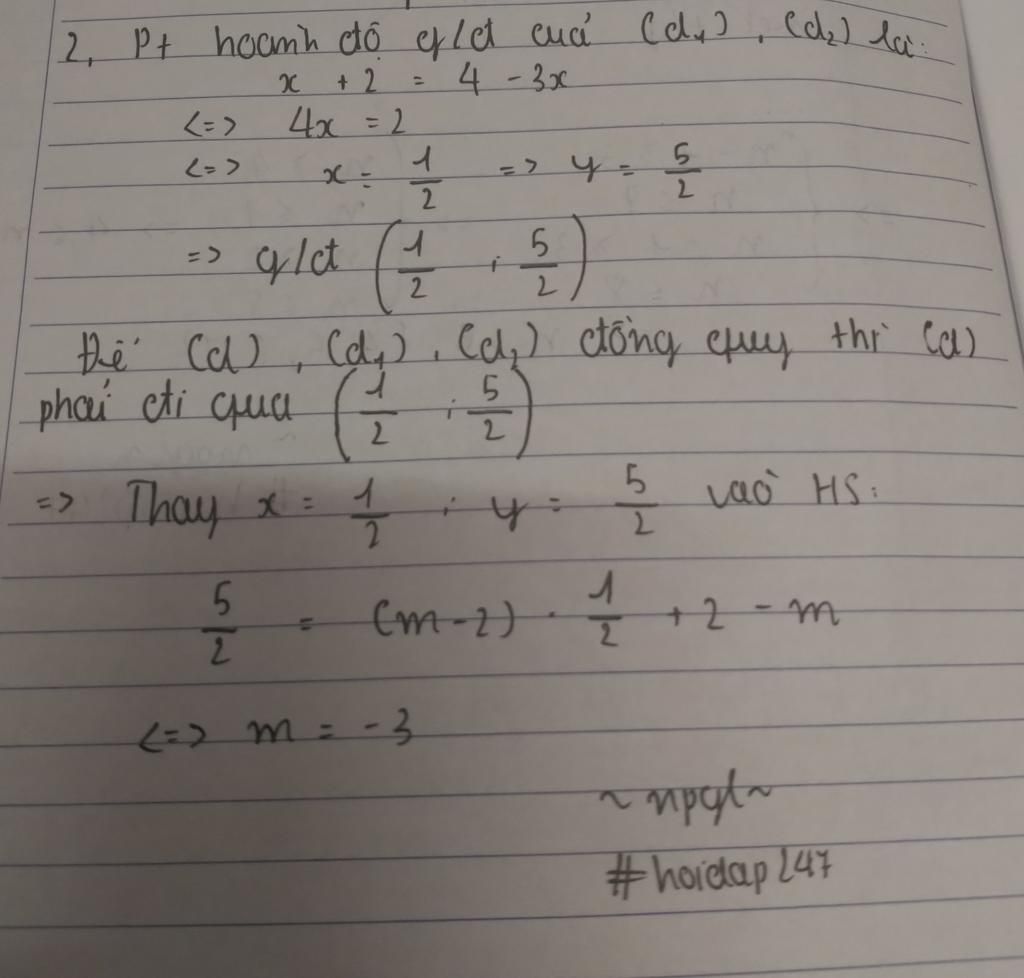 2, Pt hoành độ g/đ của (d₁), (d₂) là:
x + 2 = 4 - 3x
<=> 4x = 2
<=> x = 1/2 => y = 5/2
=> g/đ (1/2 ; 5/2)
Để (d), (d₁), (d₂) đồng quy thì (d)
phải đi qua (1/2 ; 5/2)
=> Thay x = 1/2 ; y = 5/2 vào HS:
5/2 = (m-2) . 1/2 + 2 - m
<=> m = -3
~ npgl ~
#hoidap247